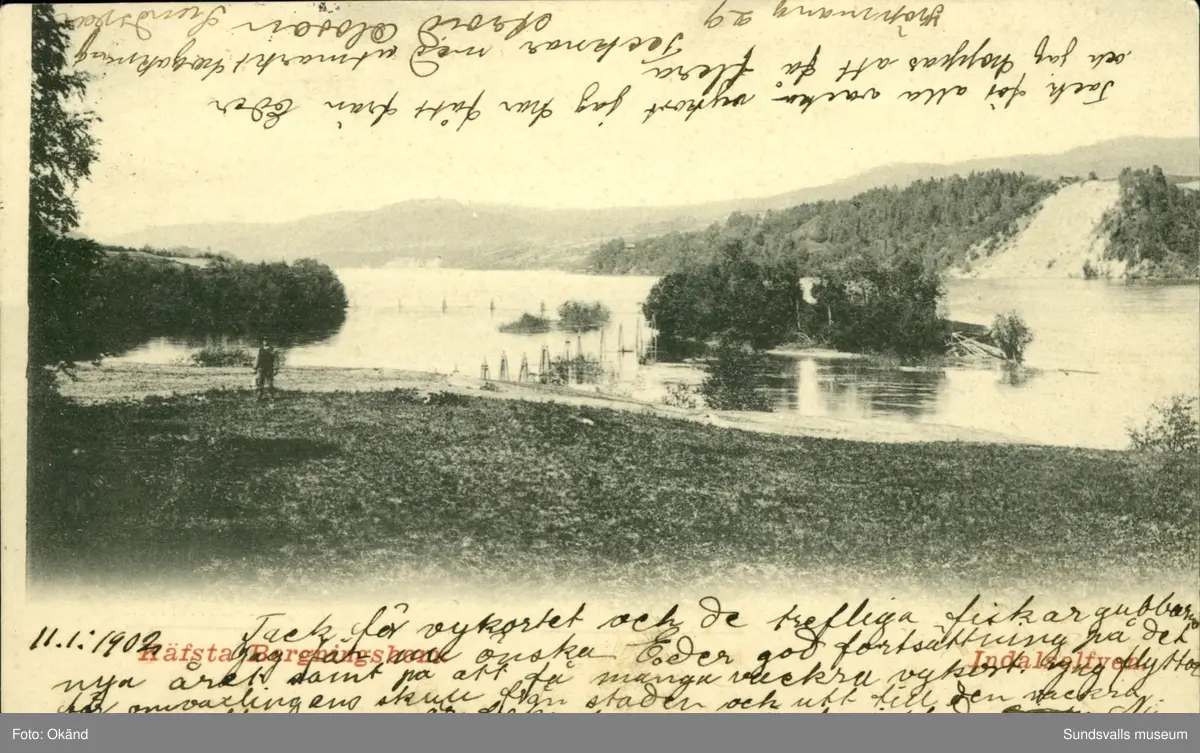 Tack för alla vackra vykort jag har fått från Eder
och jag hoppas att få flera
Tecknar med utmärkt högaktning
Köpmang 29
11.1: 1902
Tack för vykortet och de trefliga fiskargubbar
Käfsta Bergningsbom. Indalselfven.
jag kan nu önska Eder god fortsättning på det
nya året samt på att få många vackra vykort. Jag flyttar
för omvexlingens skull från staden och utt till den vackra
Foto: Okänd
Sundsvalls museum